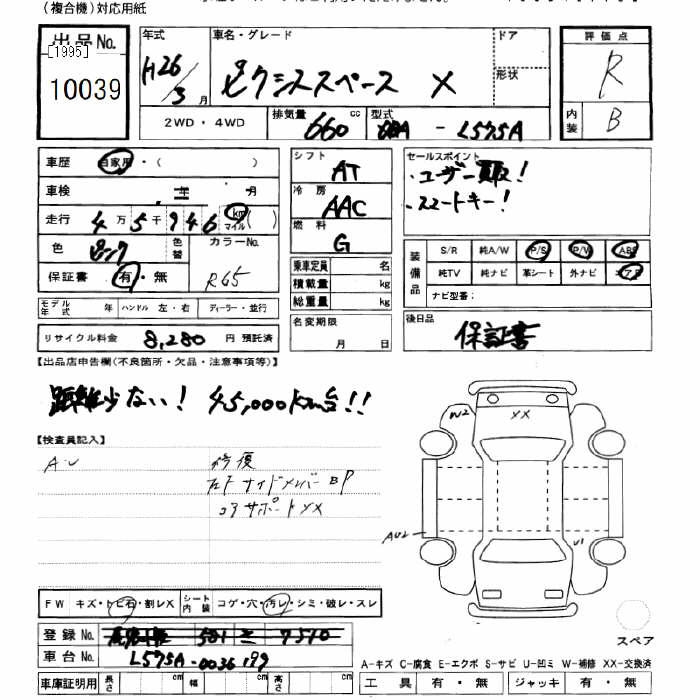 (複合機)対応用紙
出品No.
[1995]
10039
年式
H26/3月
車名・グレード
ピクシススペース X
ドア
形状
評価点
R
内装
B
2WD・4WD
排気量
660 cc
型式
DBA - L575A
車歴 自家用・( )
車検 年 月
走行 4万5千946 km マイル ( )
色 ピンク 色替 カラーNo. R65
保証書 有・無
モデル年式 年 ハンドル 左・右 ディーラー・並行
リサイクル料金 8,280 円 預託済
シフト AT
冷房 AAC
燃料 G
乗車定員 名
積載量 kg
総重量 kg
名変期限
月 日
セールスポイント
・ユーザー買取!
・スマートキー!
装備品
S/R 純A/W P/S P/W ABS
純TV 純ナビ 革シート 外ナビ エアB
ナビ型番:
後日品
保証書
【出品店申告欄(不良箇所・欠品・注意事項等)】
距離少ない! 45,000km台!!
【検査員記入】
A・U
修復
フロントサイドメンバー BP
コアサポートXX
W2
XX
AU2
U1
FW キズ・トビ石・割レX シート内装 コゲ・穴・汚レ・シミ・破レ・スレ
スペア
登録No. 581 7510
車台No. L575A-0036199
A-キズ C-腐食 E-エクボ S-サビ U-凹ミ W-補修 XX-交換済
車庫証明用 長さ cm 幅 cm 高さ cm
工具 有・無 ジャッキ 有・無